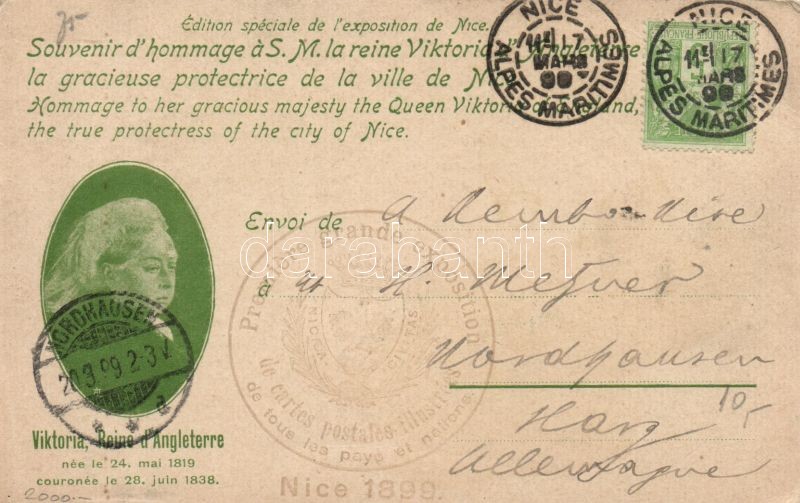 75
Édition spéciale de l'exposition de Nice.
Souvenir d'hommage à S. M. la reine Viktoria d'Angleterre
la gracieuse protectrice de la ville de
Hommage to her gracious majesty the Queen Viktoria of England,
the true protectress of the city of Nice.
NICE
11 17
MARS
99
ALPES MARITIMES
NICE
11 17
MARS
99
ALPES MARITIMES
Envoi de A
à H. Metzner
Nordhausen
Harz
Allemagne
10,-
Première grande exposition
de cartes postales illustrées
de tous les pays et nations.
NICÆA CIVITAS
Nice 1899.
darabanth
NORDHAUSEN
20.3.99.2-3N
a
Viktoria, Reine d'Angleterre
née le 24. mai 1819
couronée le 28. juin 1838.
2000.-